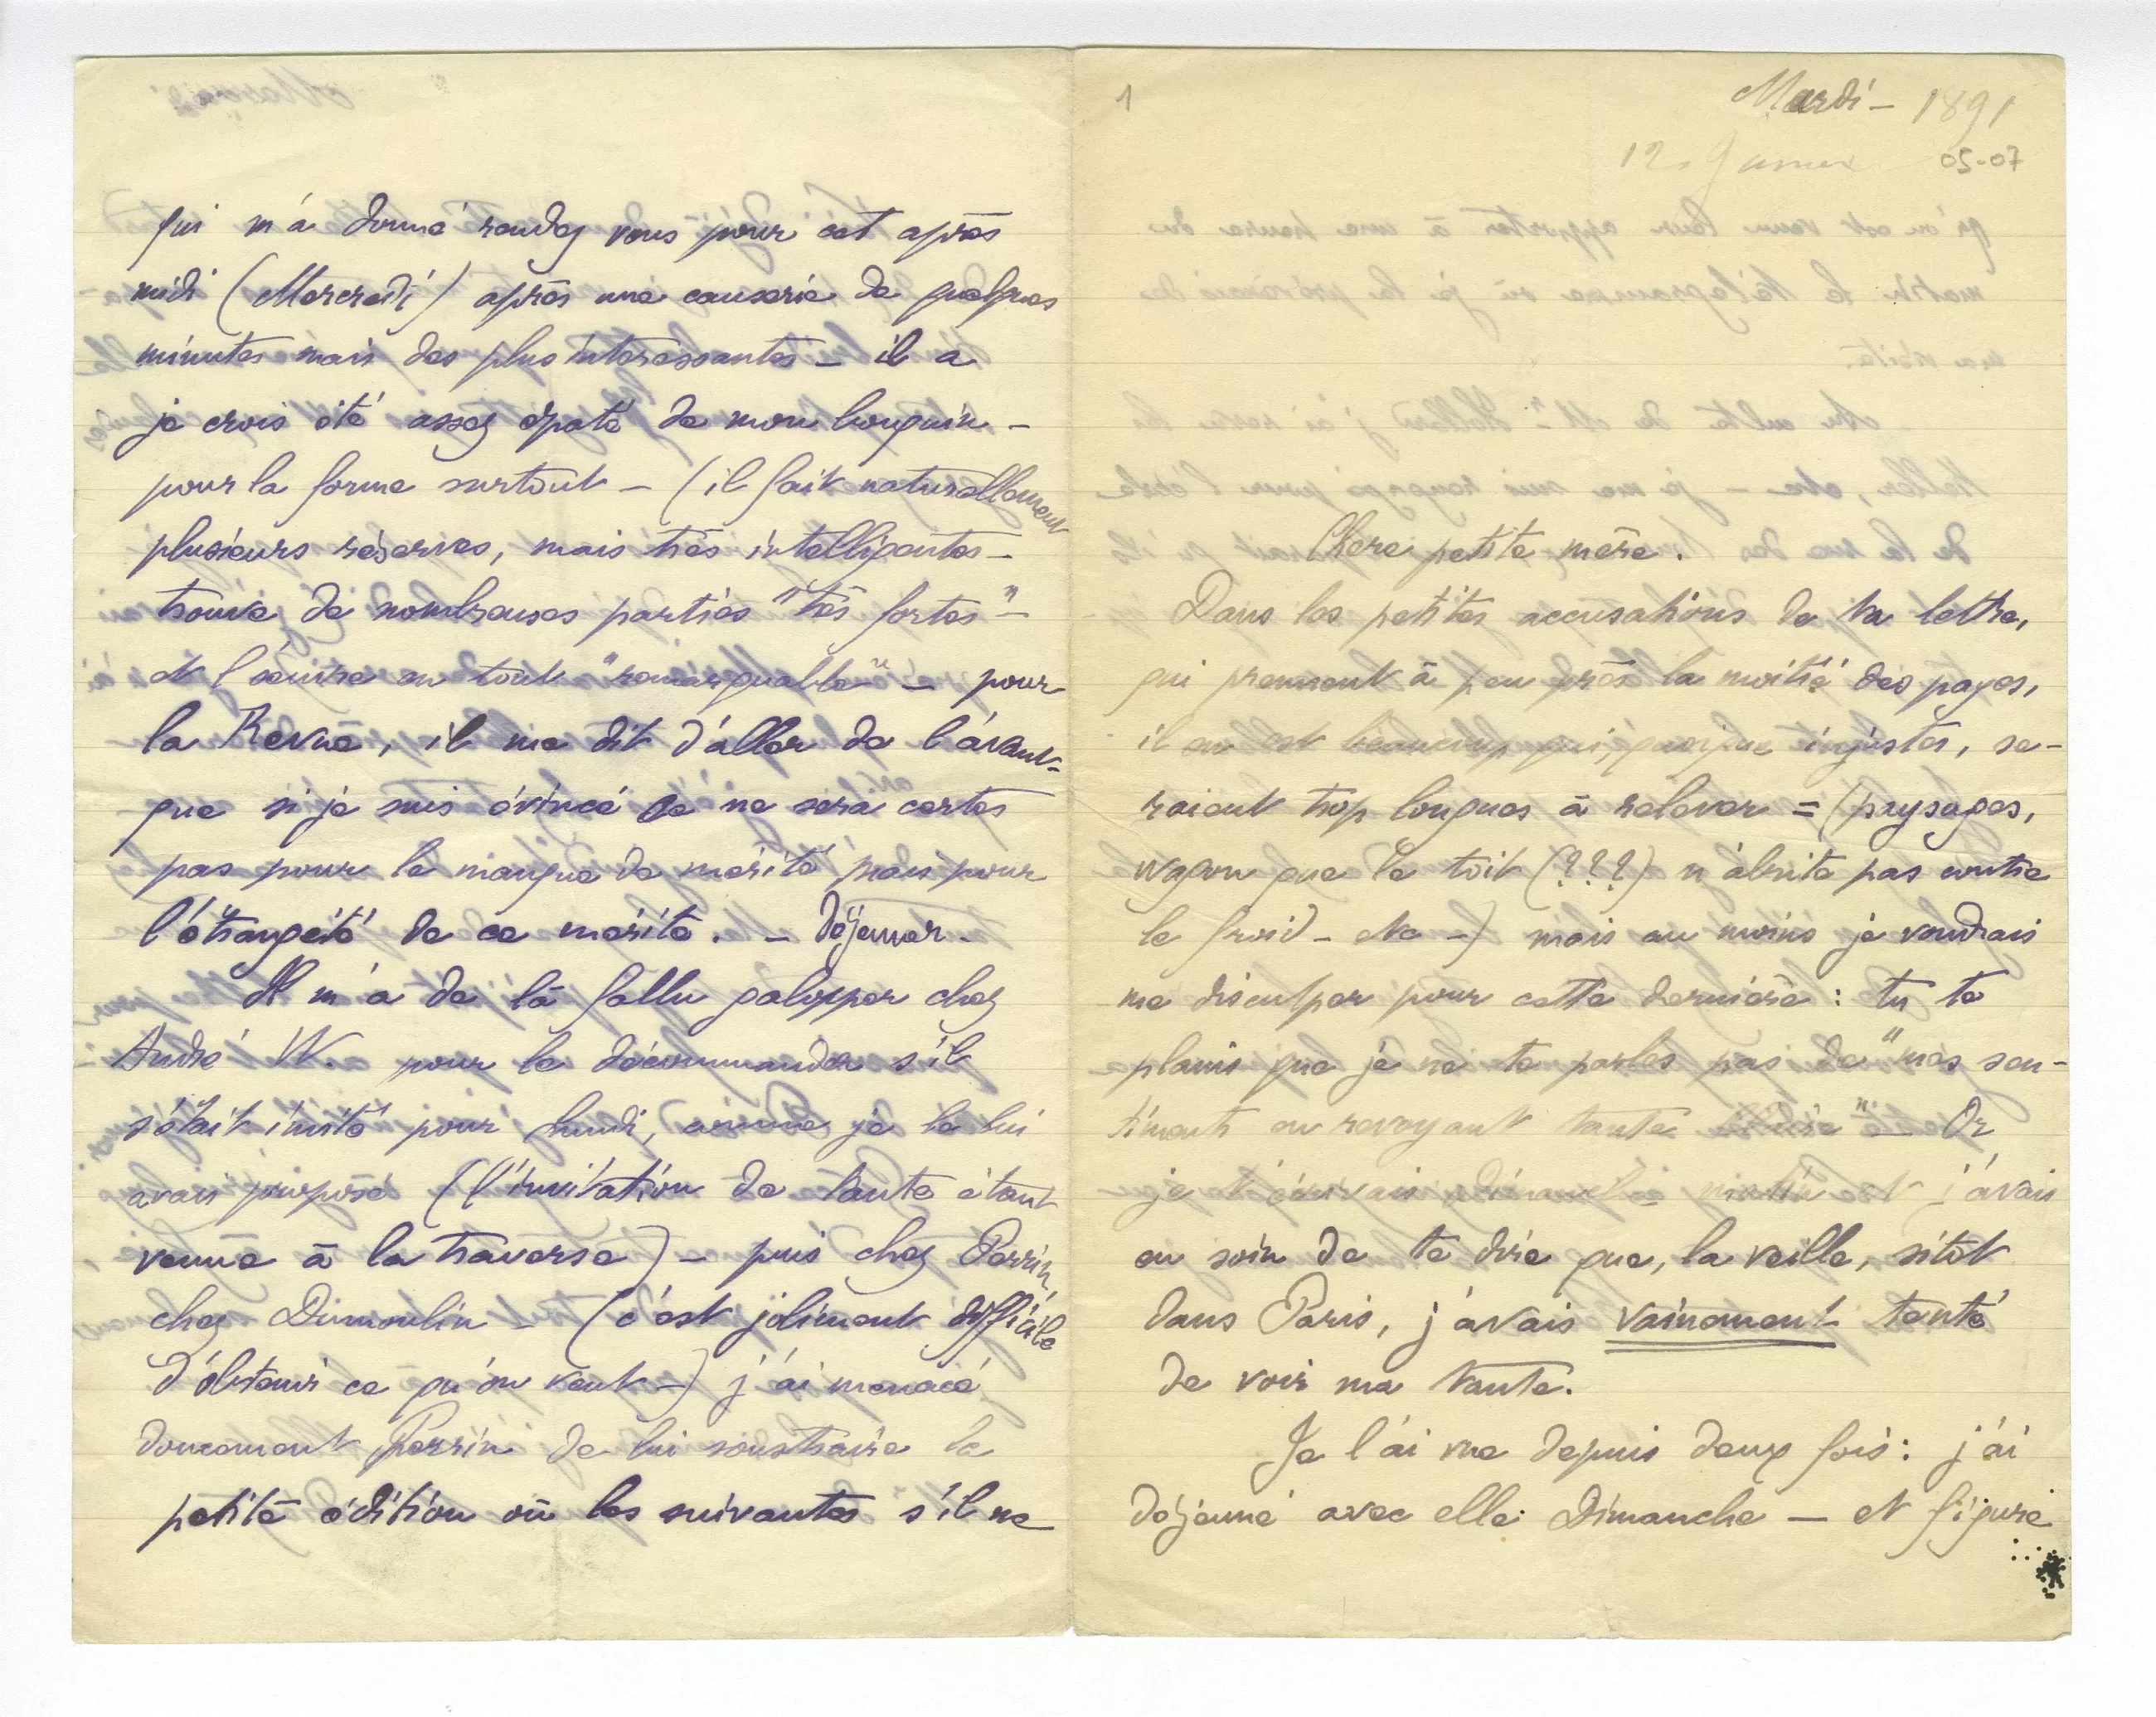 1
Mardi – 1891
12. Janvier
05-07
Chere petite mère.
Dans les petites accusations de ta lettre,
qui prennent à peu près la moitié des pages,
il en est beaucoup qui, quoique injustes, se-
raient trop longues à relever = (paysages,
wagon que le toit (???) n'abrite pas contre
le froid – etc –) mais au moins je voudrais
me disculper pour cette dernière : tu te
plains que je ne te parles pas de "mes sen-
timents en revoyant tante " – Or
je t'écrivais dimanche matin et j'avais
eu soin de te dire que, la veille, sitôt
dans Paris, j'avais vainement tenté
de voir ma tante.
Je l'ai vue depuis deux fois : j'ai
déjeuné avec elle Dimanche – et figure
qui m'a donné rendez vous pour cet après
midi (Mercredi) après une causerie de quelques
minutes mais des plus intéressantes – il a
je crois été assez épaté de mon bouquin –
pour la forme surtout – (il fait naturellement
plusieurs réserves, mais très intelligentes –
trouve de nombreuses parties "très fortes" –
et l'œuvre en tout "remarquable" – pour
la Revue, il me dit d'aller de l'avant –
que si je suis évincé ce ne sera certes
pas pour le manque de mérite mais pour
l'étrangeté de ce mérite. – Déjeuner –
Il m'a de là fallu galopper chez
André W. pour le décommander s'il
s'était invité pour lundi, comme je le lui
avais proposé (l'invitation de tante étant
venue à la traverse) – puis chez Perrin,
chez Dumoulin – (c'est joliment difficile
d'obtenir ce qu'on veut –) j'ai menacé
doucement Perrin de lui soustraire la
petite édition ou les suivantes s'il ne